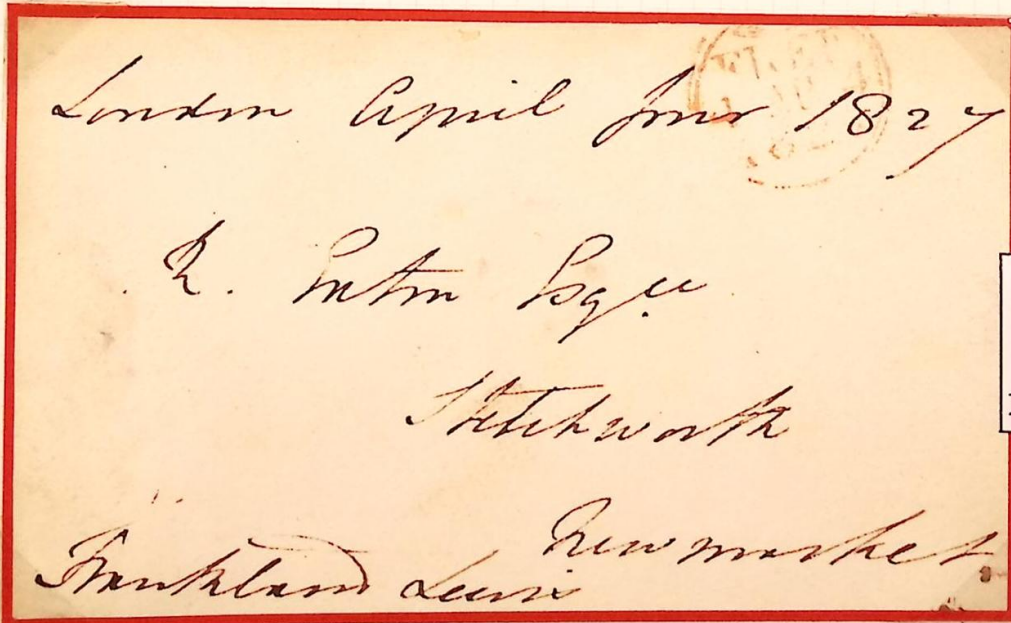 London April four 1827
R. Eaton Esqre
Stetchworth
Newmarket
Frankland Lewis